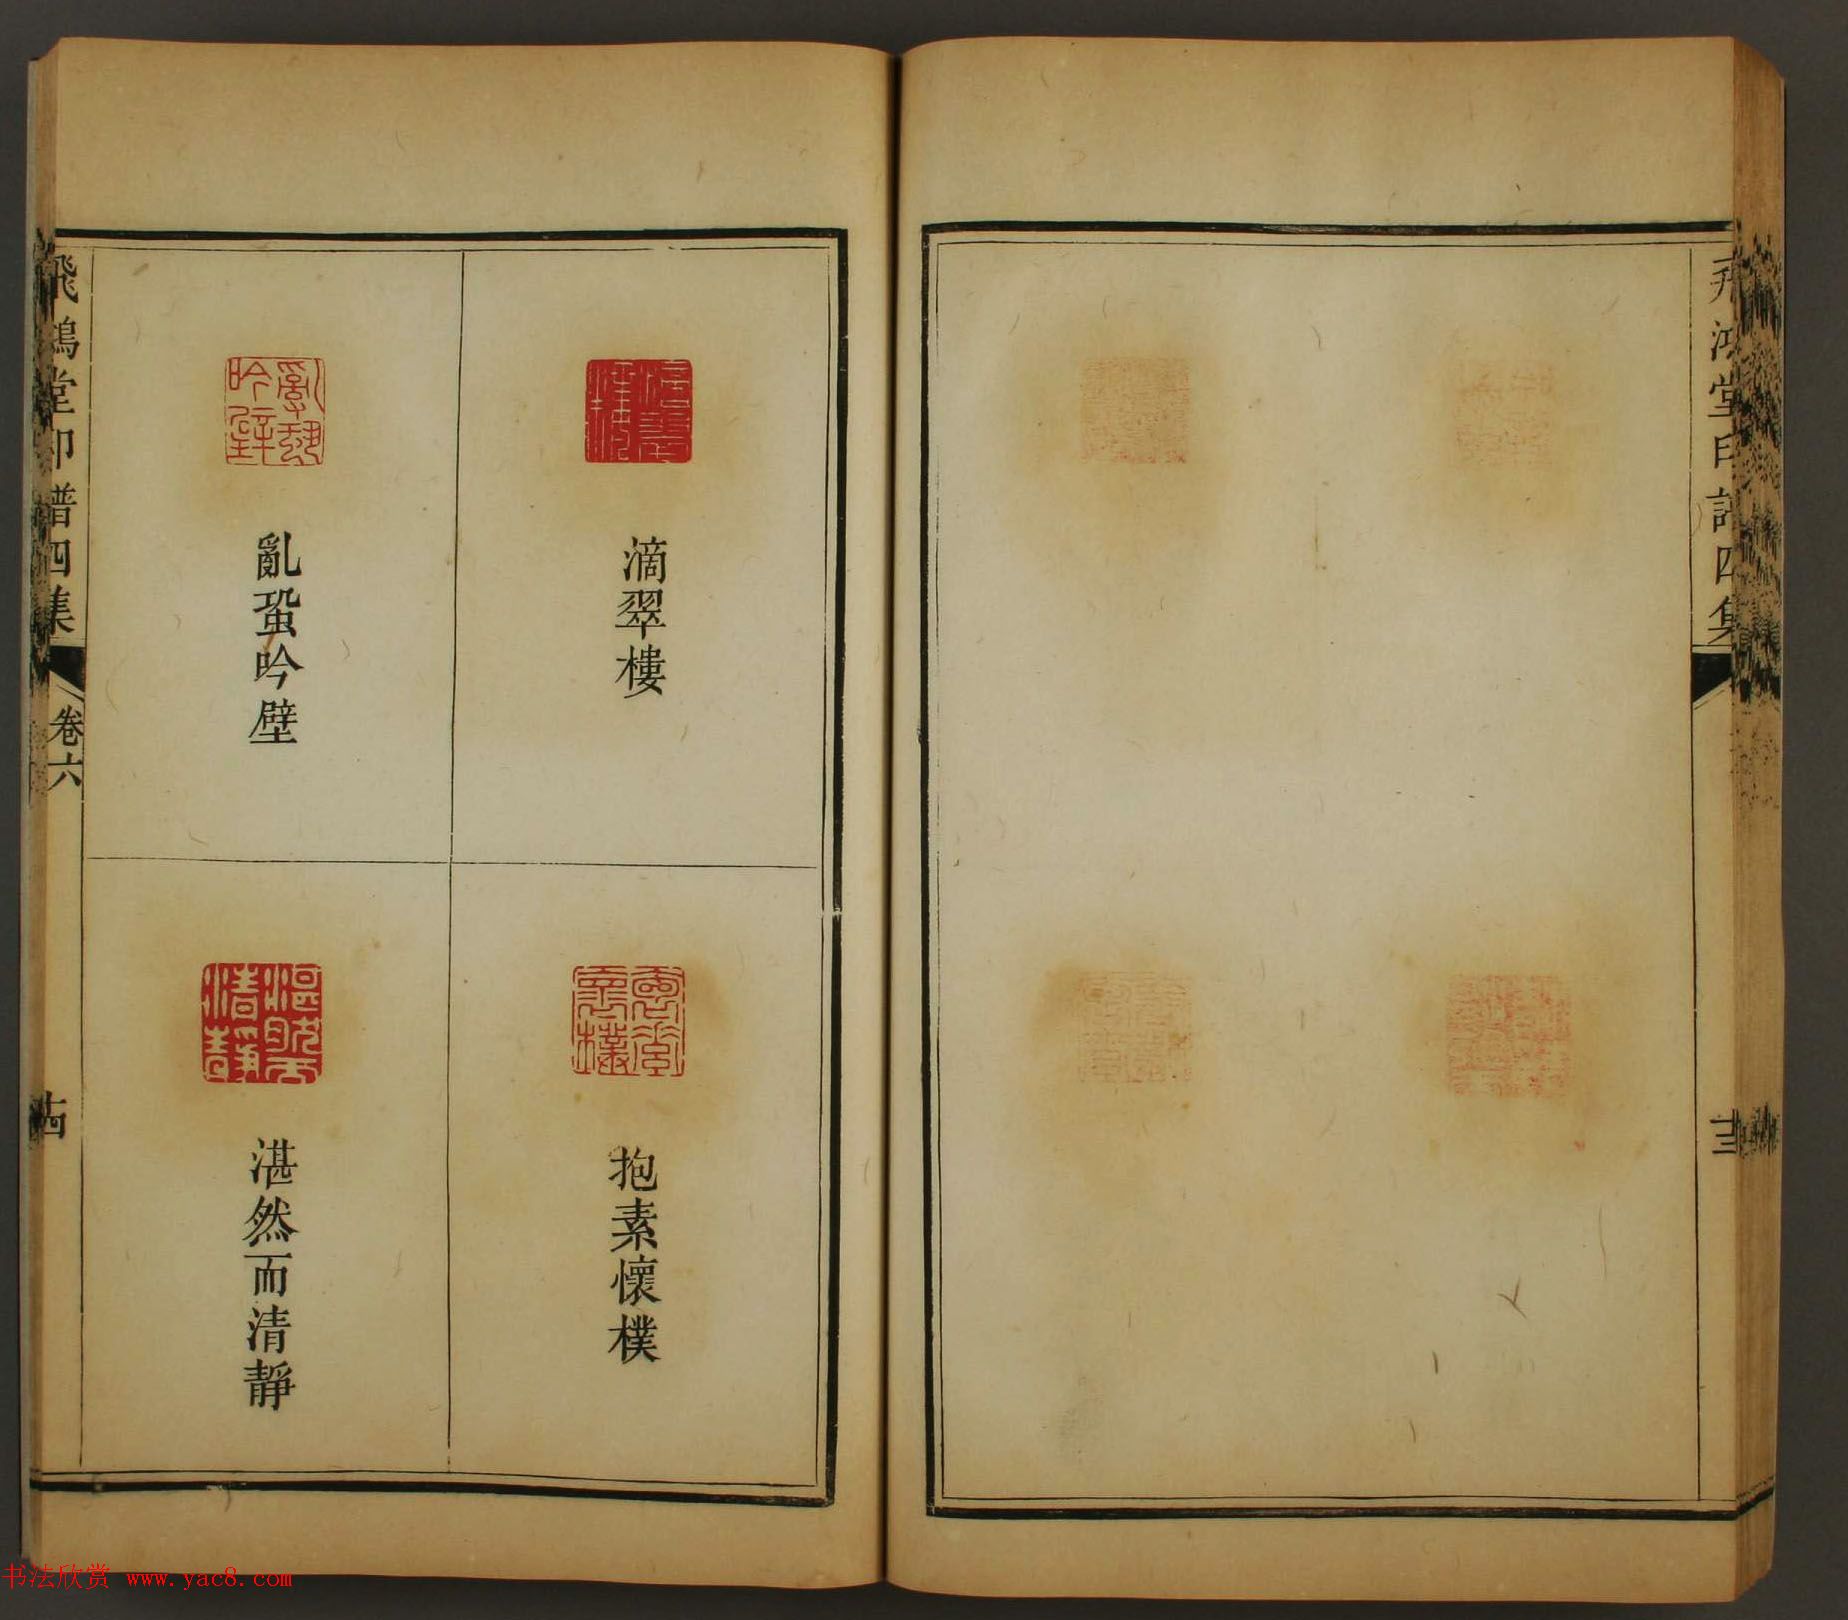 飛鴻堂印譜四集
十三
滴翠樓
亂蛩吟壁
抱素懷樸
湛然而清靜
飛鴻堂印譜四集
卷六
十四
书法欣赏 www.yac8.com